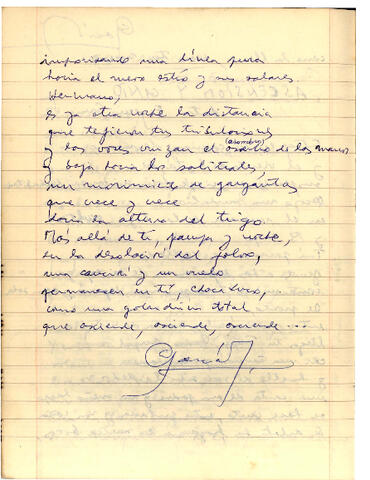 una línea pura
hacia el nuevo estío y sus valores.
Hermano,
es ya otra noche la distancia
que tejieron tus tribulaciones
(asombro)
y las voces cruzan el de las manos
y baja hacia los salitrales,
un movimiento de gargantas
que crece y crece
hacia la altura del trigo.
Más allá de ti, pampa y noche,
en la desolación del polvo,
una canción y un vuelo
permanecen en ti,
como una golondrina total
que asciende, asciende, asciende ...